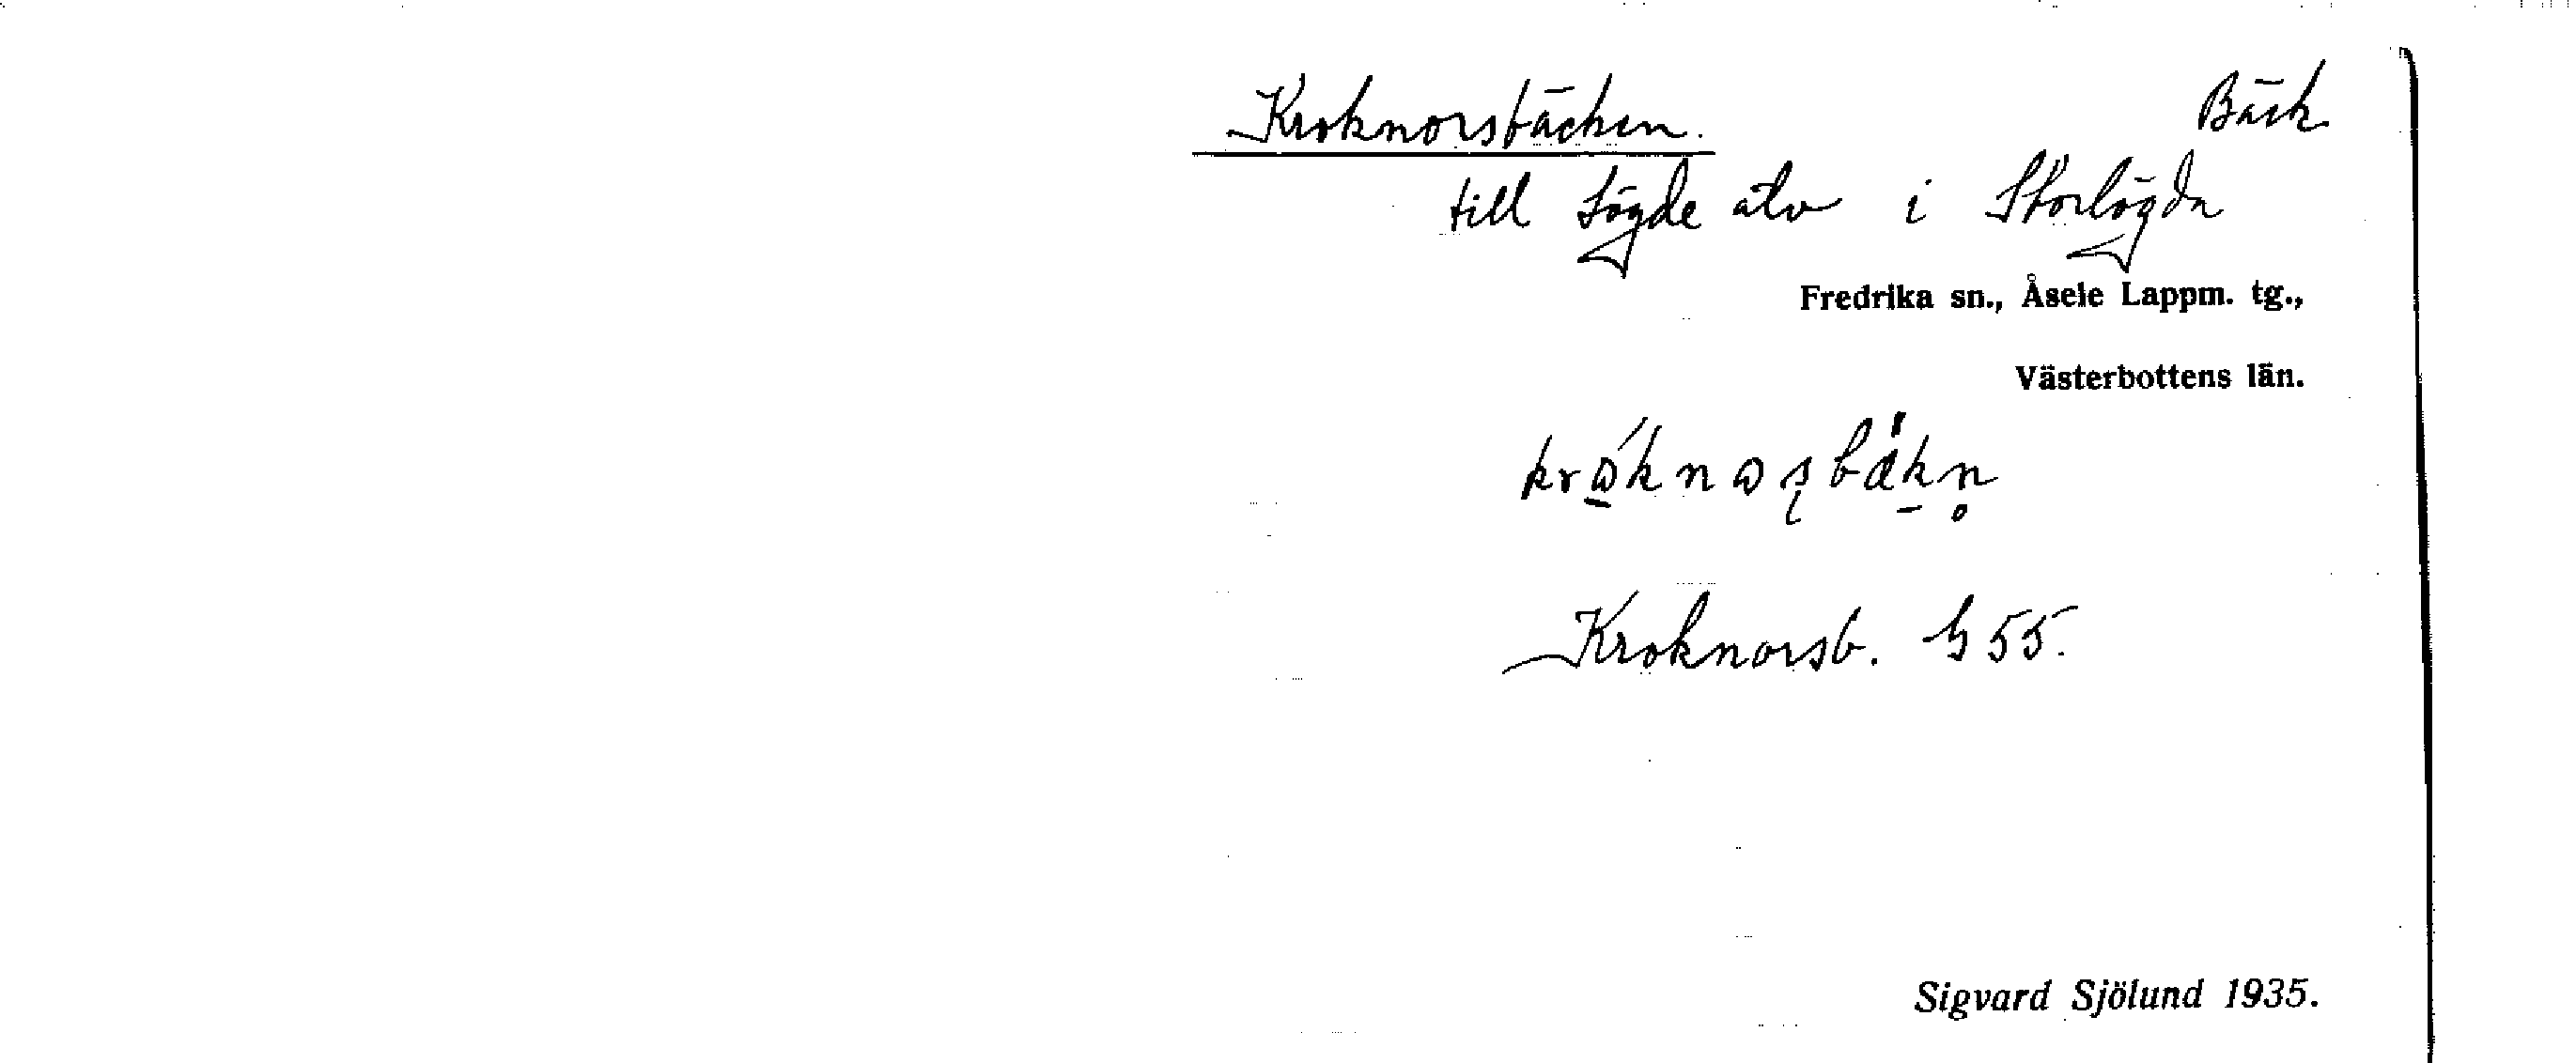 Kroknorsbäcken. Bäck
till Lögde älv i Storlögda
Fredrika sn., Åsele Lappm. tg.,
Västerbottens län.
Kroknorsb. 55.
Sigvard Sjölund 1935.